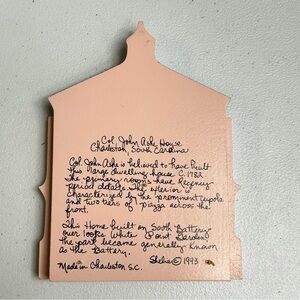 Col. John Ashe House
Charleston, South Carolina
Col. John Ashe is believed to have built
this large dwelling house C. 1782.
The primary rooms have Regency
period details. The exterior is
characterized by the prominent cupola
and two tiers of piazza across the
front.
This Home built on South Battery
over looks White Point Gardens
the park became generally known
as the Battery.
Made in Charleston S.C. Shelia © 1993